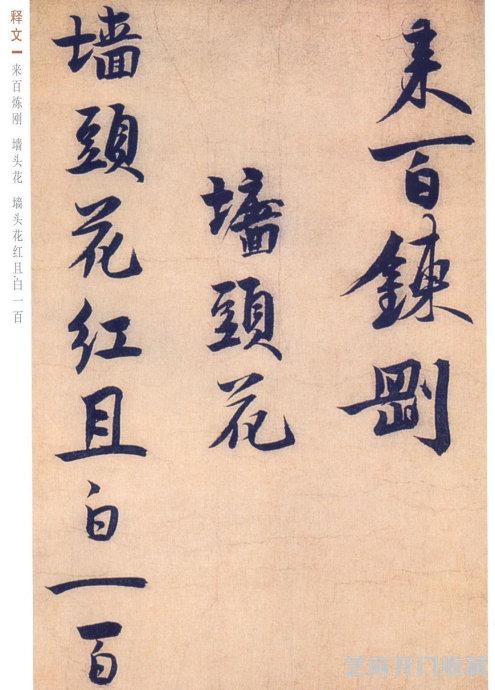 来百鍊剛
墻頭花
墻頭花红且白一百
释文
来百炼刚 墙头花 墙头花红且白一百